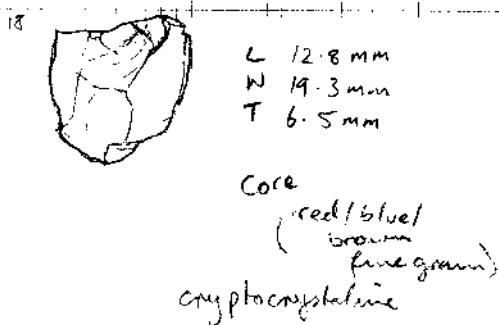 18
L 12.8 mm
W 19.3 mm
T 6.5 mm
Core
(red/blue/
brown
fine grain)
cryptocrystaline